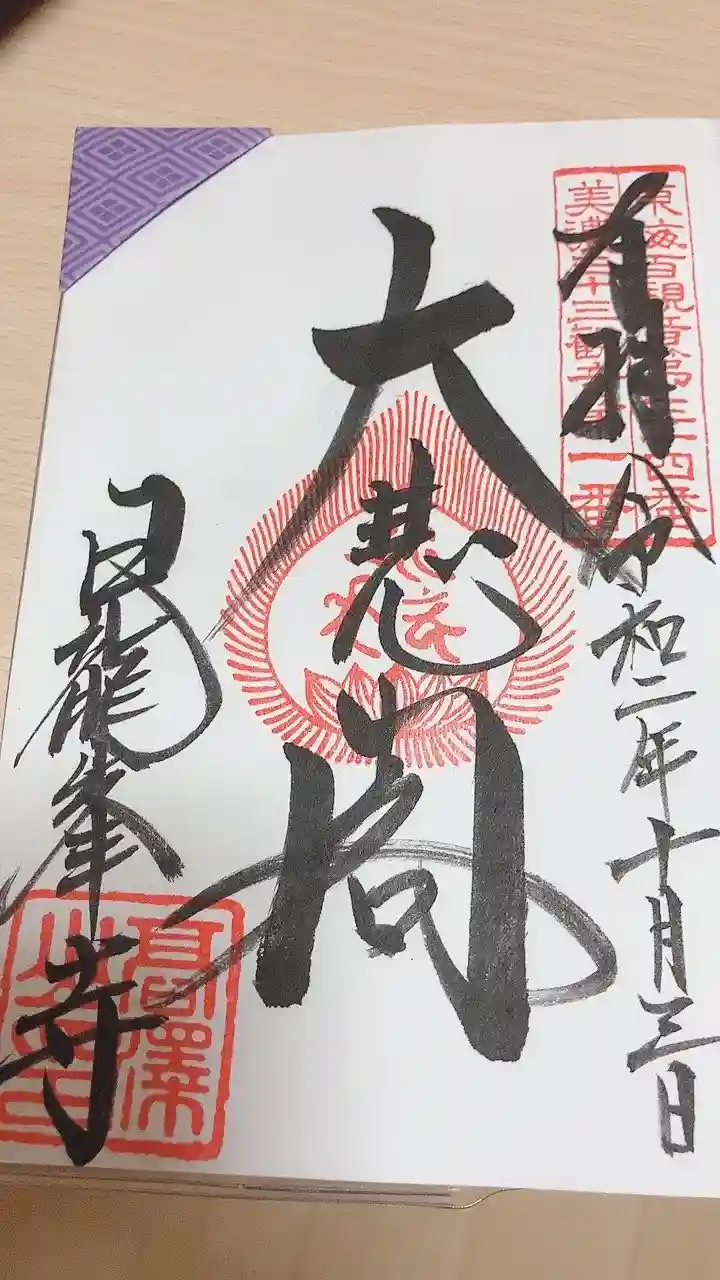 東海百観音第三十四番
美濃三十三観音第一番
奉拝 令和二年十月三日
大悲閣
日龍峯寺